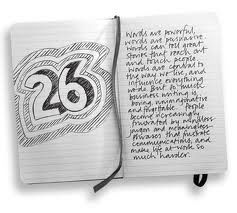 26
Words are powerful,
words are persuasive
words can tell great
stories that reach out
and touch people.
Words are central to
the way we live, and
influence everything we
do. But so much
business writing is
boring, unimaginative
and forgettable. People
become increasingly
frustrated by mindless
jargon and meaningless
phrases that frustrate
communications, and
make life at work so
much harder.